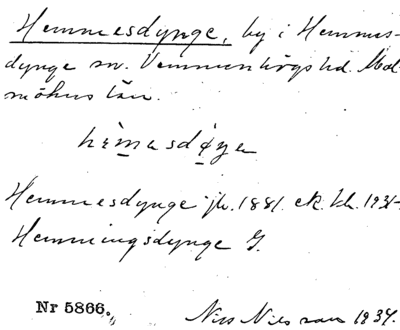 Hemmesdynge, by i Hemmes-
dynge sn. Vemmenhögs hd. Mal-
möhus län.
Hemmesdynge jb. 1881. ek. kb. 1931-
Hemmingsdynge G.
Nr 5866.
Nils Nilsson 1934.